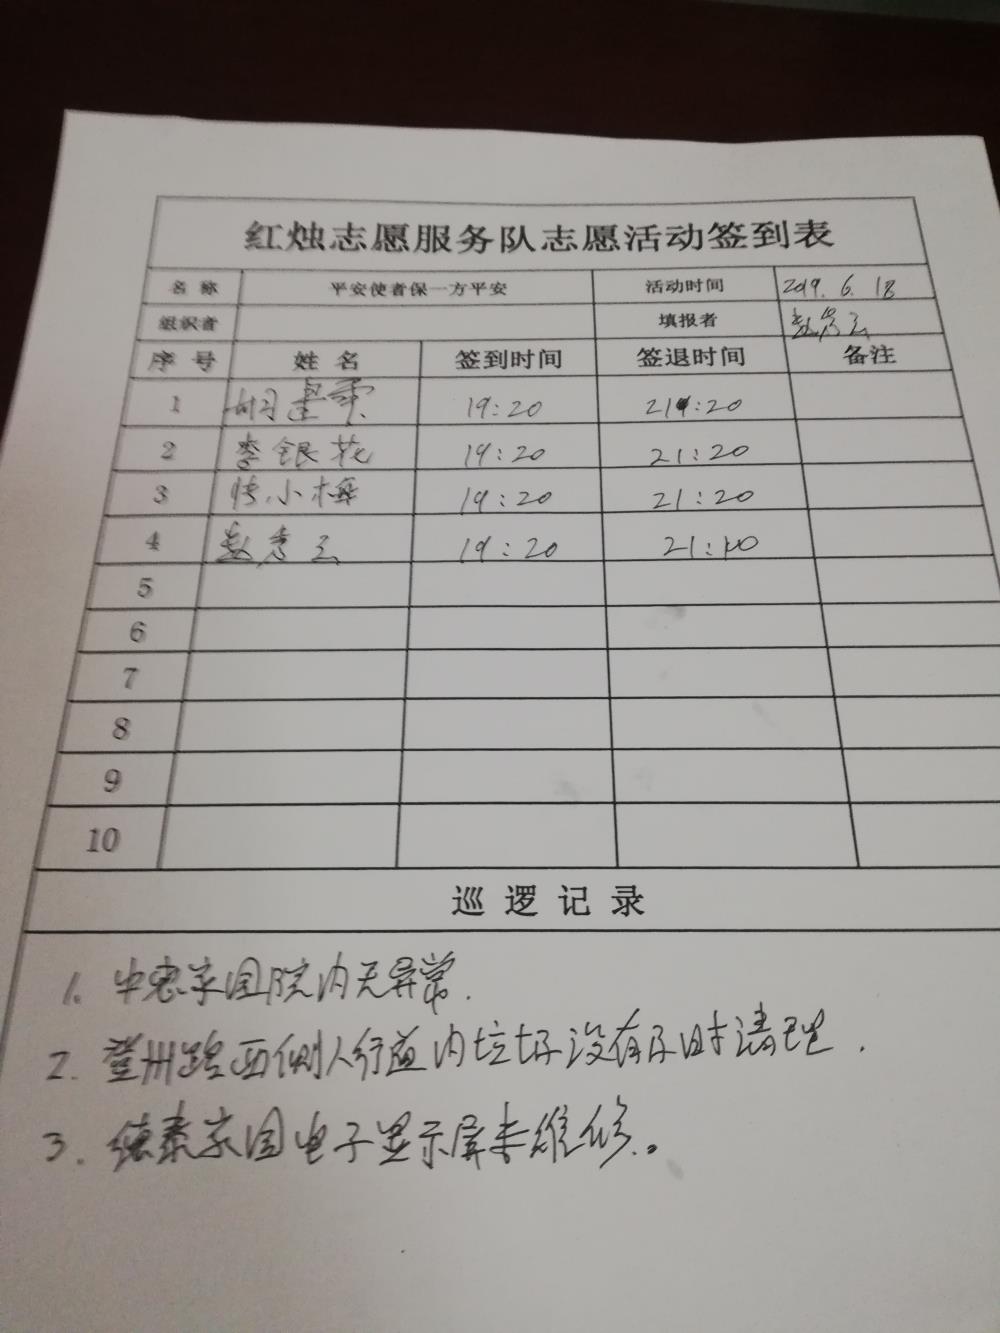 红烛志愿服务队志愿活动签到表
名称 平安使者保一方平安 活动时间 2019.6.18
组织者 填报者 赵秀云
序号 姓名 签到时间 签退时间 备注
1 胡 19:20 21:20
2 李银花 19:20 21:20
3 小梅 19:20 21:20
4 赵秀云 19:20 21:10
5
6
7
8
9
10
巡逻记录
1. 中惠家园院内无异常.
2. 登州路西侧人行道内垃圾没有及时清理.
3. 德泰家园电子显示屏未维修。